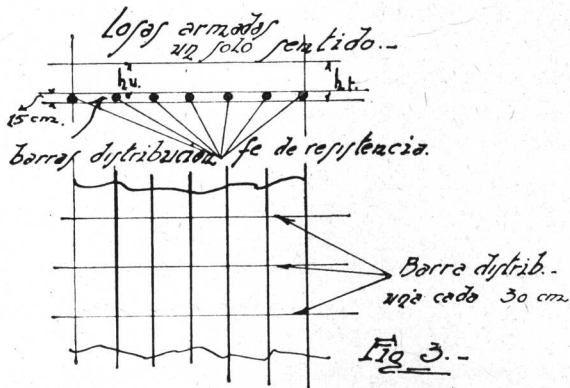 Losas armadas
un solo sentido.-
hu.
ht.
15 cm.
barras distribucion fe de resistencia.
Barra distrib.-
una cada 30 cm
Fig 3.-